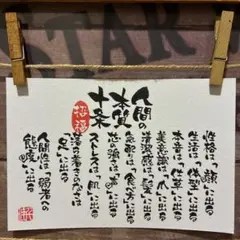 人間の
本質
十ヶ条
招福
性格は「顔」に出る
生活は「体型」に出る
本音は「仕草」に出る
美意識は「爪」に出る
清潔感は「髪」に出る
気配りは「食べ方」に出る
芯の強さは「声」に出る
ストレスは「肌」に出る
落ち着きのなさは
「足」に出る
人間性は「弱者への
態度」に出る